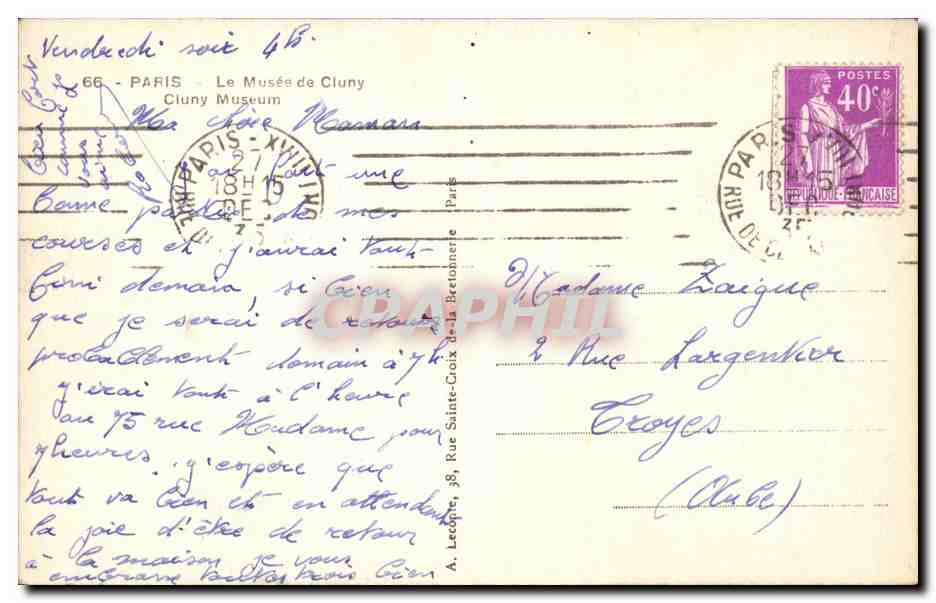 Vendredi soir 4h.
66 - PARIS - Le Musée de Cluny
Cluny Museum
Ma chère Maman
fait une
bonne partie de mes
courses et j'aurai tout
fini demain, si bien
que je serai de retour
probablement demain à 7h.
J'irai tout à l'heure
au 75 rue Madame pour
7 heures. J'espère que
tout va bien et en attendant
la joie d'être de retour
à la maison je vous
embrasse toutes trois bien
bien fort
comme je
vous
aime
A. Lecopte, 38, Rue Sainte-Croix de-la Bretonnerie Paris
PARIS - XVIII
27
18H15
DEC
35
POSTES
40c
REPUBLIQUE-FRANCAISE
PARIS - XVIII
27
18H15
35
RUE DE
Madame Zaigue
2 Rue Largentier
Troyes
(Aube)
CPAPHIL